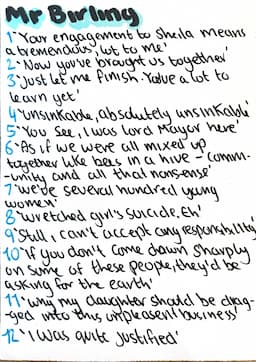 Mr Birling
1 'Your engagement to Sheila means
a tremendous, lot to me'
2 'Now you've brought us together'
3 'Just let me finish. You've a lot to
learn yet'
4 'Unsinkable, absolutely unsinkable'
5 'You see, I was Lord Mayor here'
6 'As if we were all mixed up
together like bees in a hive - comm-
-unity and all that nonsense'
7 'we're several hundred young
women'
8 'Wretched girl's suicide. Eh'
9 'Still, I can't accept any responsibility'
10 'If you don't come down sharply
on some of these people, they'd be
asking for the earth'
11 'why my daughter should be drag-
-ged into this unpleasent business'
12 'I was quite justified'